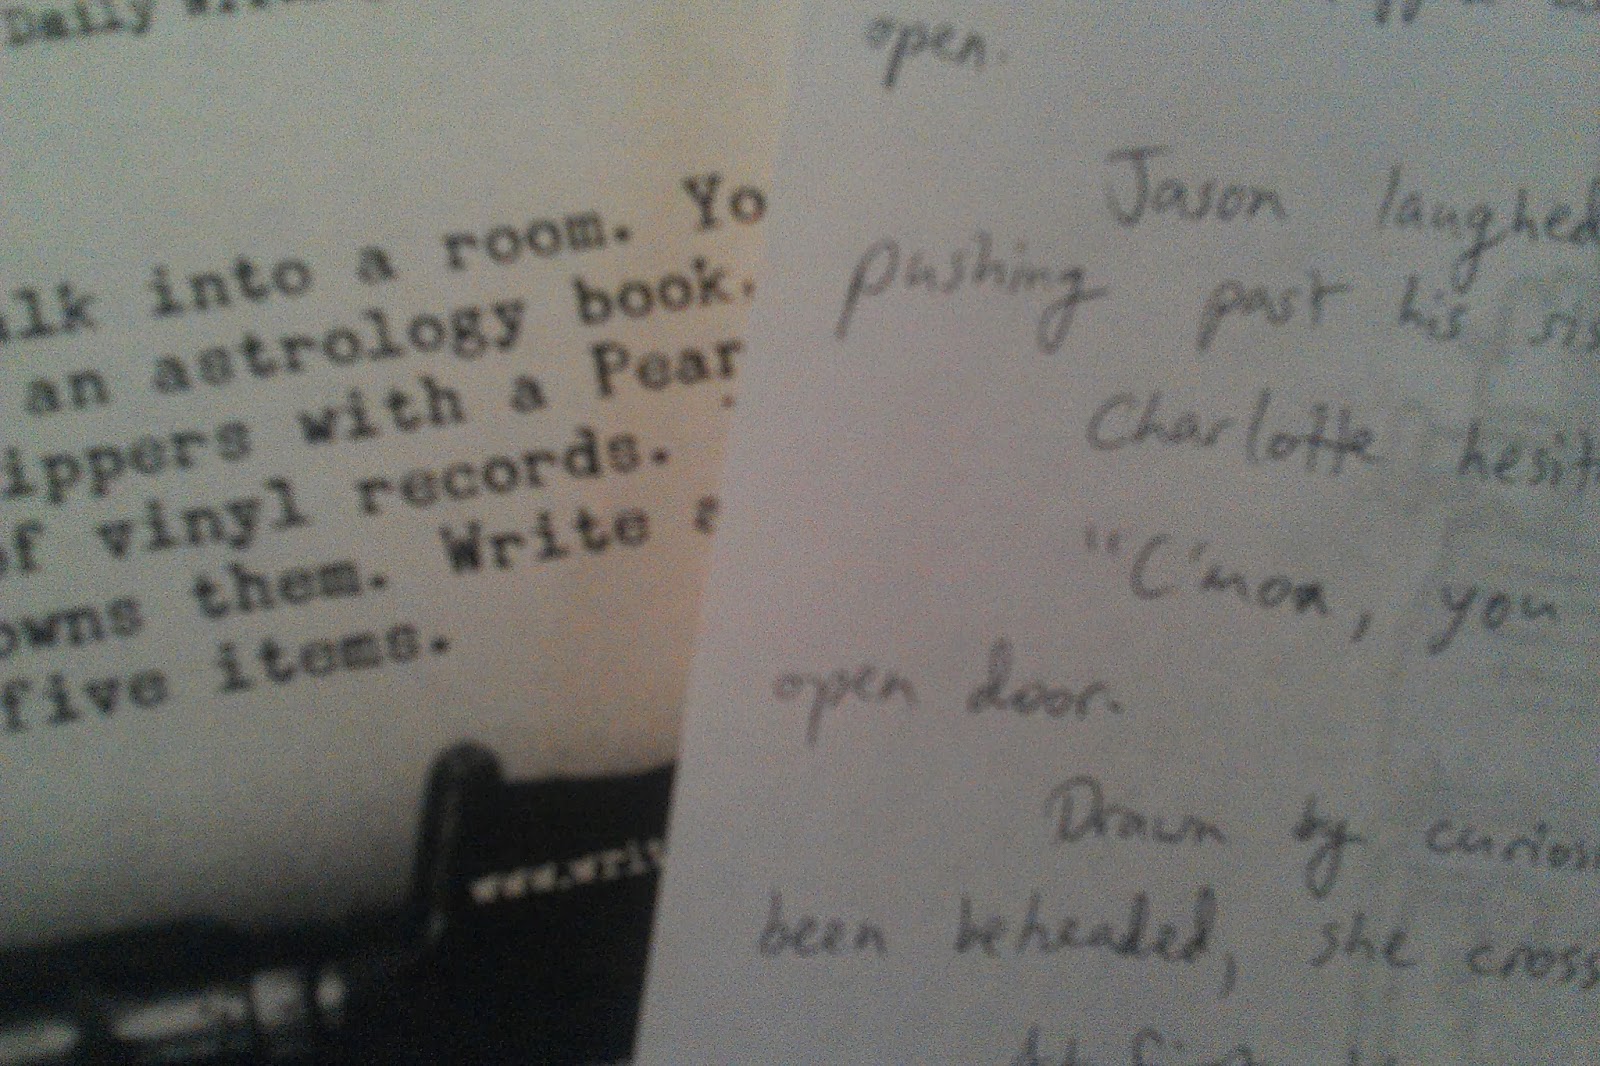 Daily
alk into a room. Yo
an astrology book.
ippers with a Pear
of vinyl records.
owns them. Write a
five items.
www.writ
open.
Jason laughed
pushing past his sis
Charlotte hesit
"C'mon, you
open door.
Drawn by curios
been beheaded, she cross